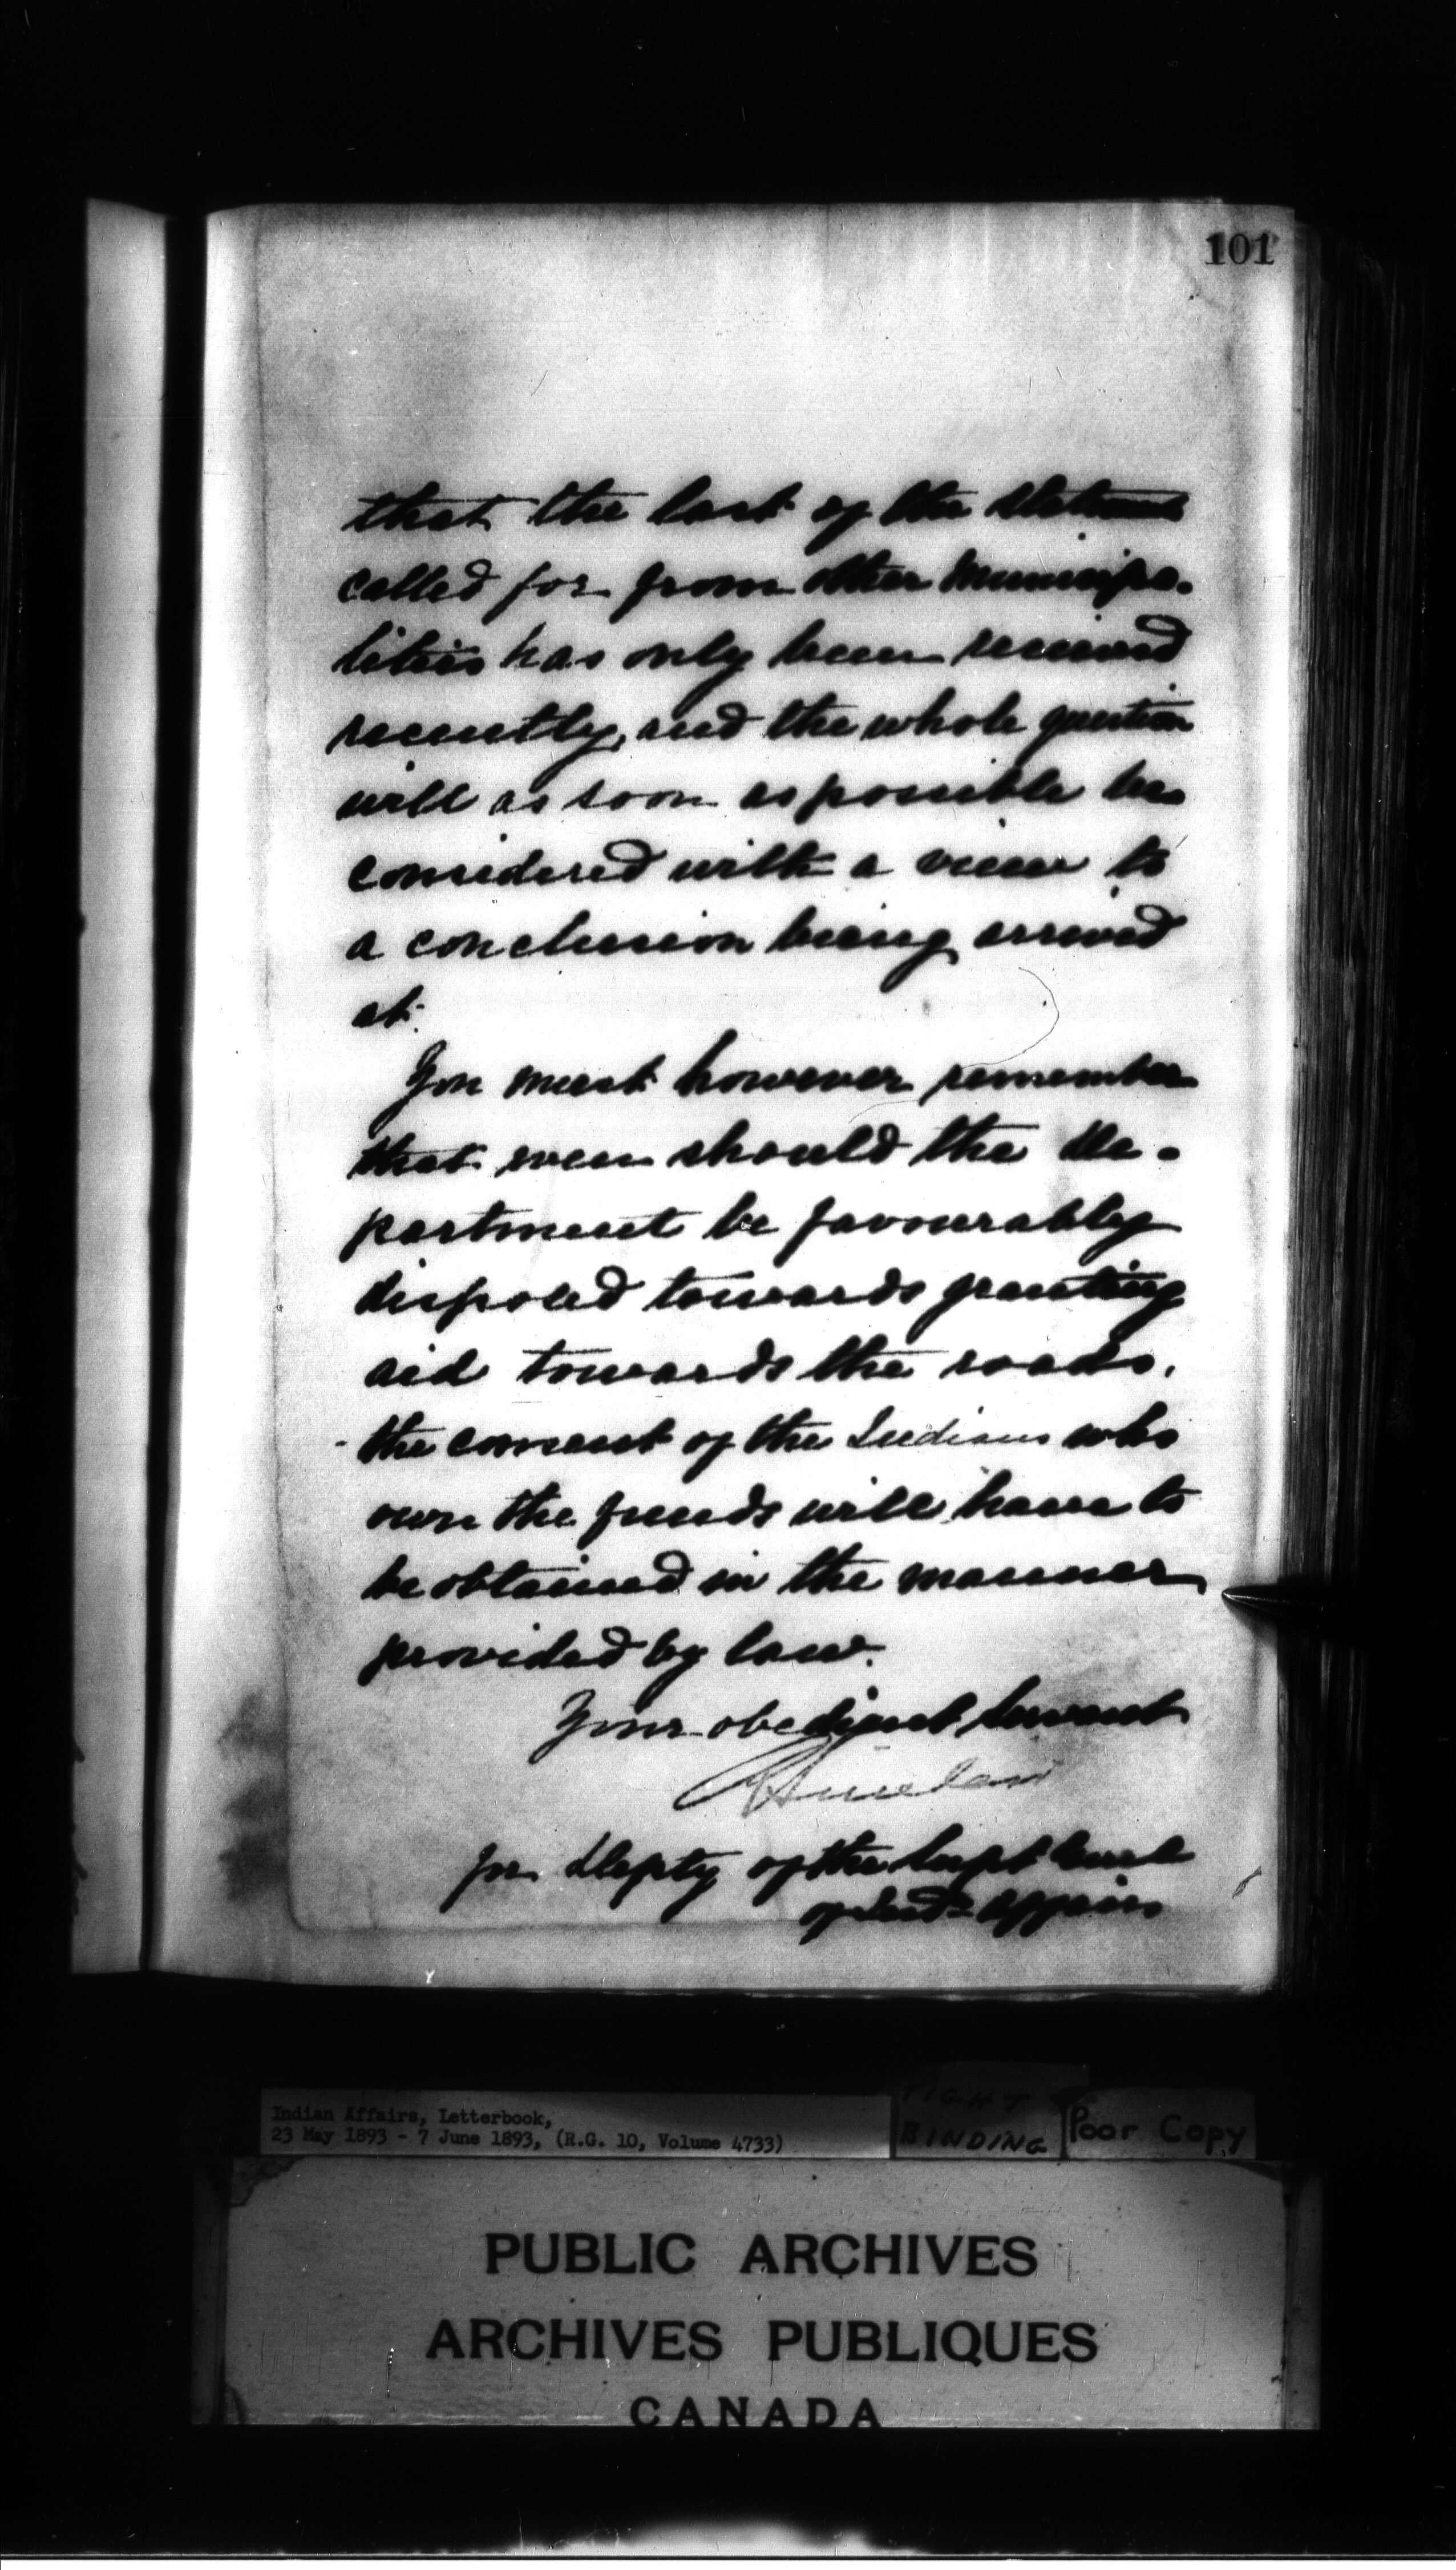 101
that the last of the
called for from other Municipa-
lities has only been received
recently, and the whole question
will as soon as possible be
considered with a view to
a conclusion being arrived
at.
You must however remember
that even should the De-
partment be favourably
disposed towards granting
aid towards the roads,
the consent of the Indians who
own the funds will have to
be obtained in the manner
provided by law.
Your obedient servant
for Depty of the Supt Genl
of Ind= Affairs
Indian Affairs, Letterbook,
23 May 1893 - 7 June 1893, (R.G. 10, Volume 4733)
TIGHT
BINDING
Poor Copy
PUBLIC ARCHIVES
ARCHIVES PUBLIQUES
CANADA